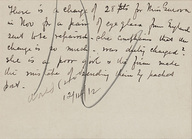 There is a charge of 28 Fr for Miss Cameron
in Nov for a pair of eye glass from England
sent to be repaired. She complains that the
charge is so much. Was duty charged?
She is a poor soul & the firm made
the mistake of sending them by packet
post.
12/11/12